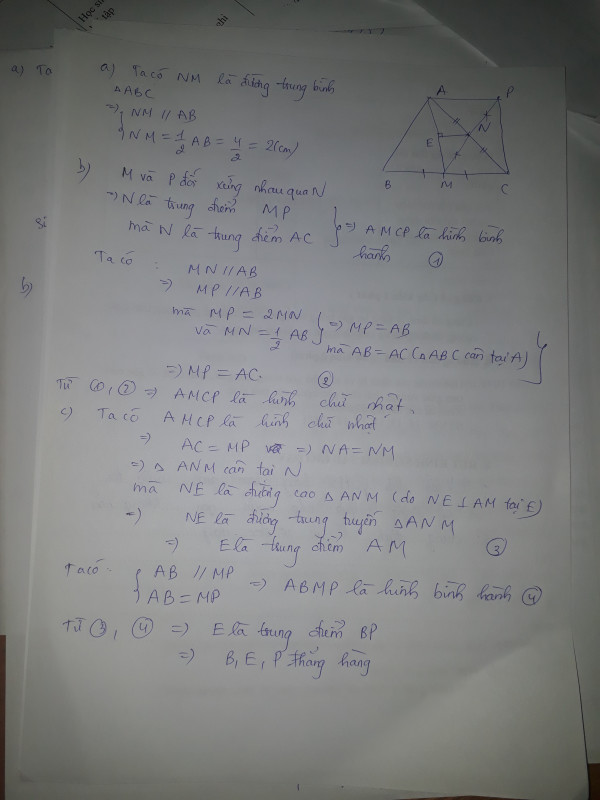 Học si
tập
hi
a) Ta
a) Ta có NM là đường trung bình
△ABC
=> { NM // AB
NM = 1/2 AB = 4/2 = 2(cm)
b) M và P đối xứng nhau qua N
=> N là trung điểm MP
mà N là trung điểm AC } => AMCP là hình bình
hành ①
Ta có : MN // AB
=> MP // AB
mà MP = 2MN
và MN = 1/2 AB } => MP = AB
mà AB = AC (△ABC cân tại A) }
=> MP = AC. ②
Từ ①, ② => AMCP là hình chữ nhật.
c) Ta có AMCP là hình chữ nhật
=> AC = MP => NA = NM
=> △ ANM cân tại N
mà NE là đường cao △ANM (do NE ⊥ AM tại E)
=> NE là đường trung tuyến △ANM
=> E là trung điểm AM ③
Ta có : { AB // MP
AB = MP => ABMP là hình bình hành ④
Từ ③, ④ => E là trung điểm BP
=> B, E, P thẳng hàng
A P
E N
B M C
si
b)